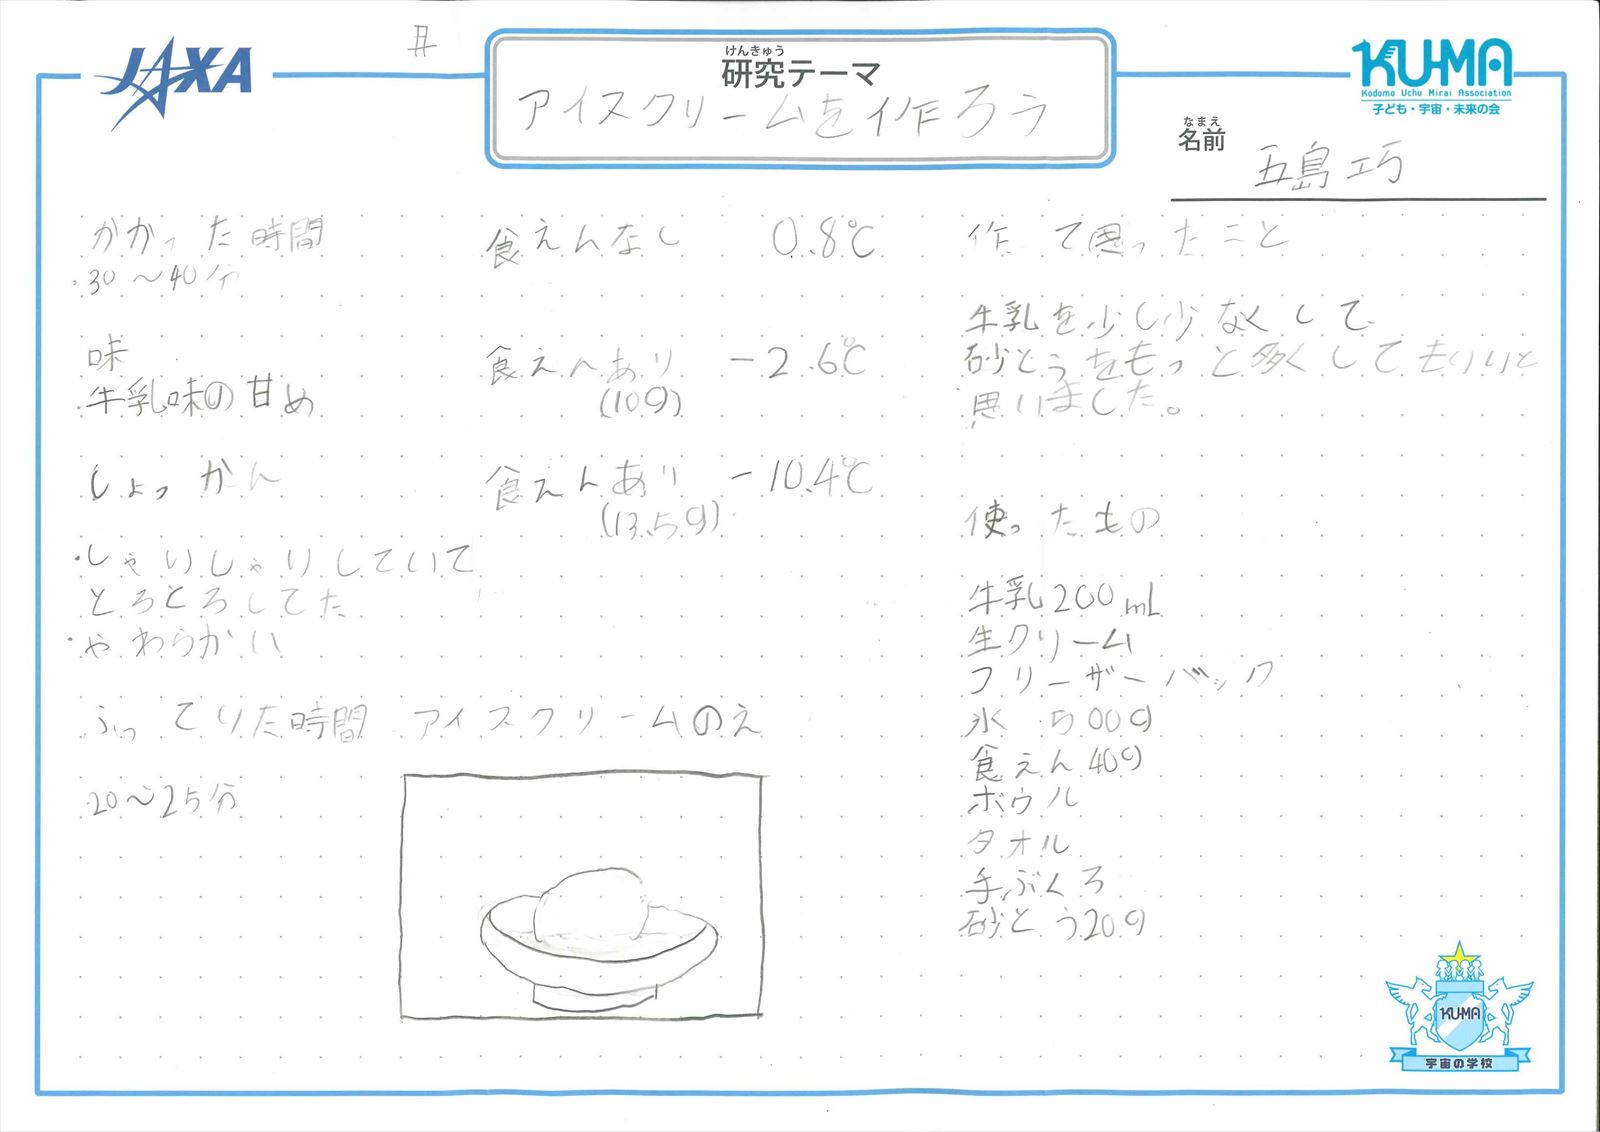 JAXA
けんきゅう
研究テーマ
アイスクリームを作ろう
KU-MA
Kodomo Uchu Mirai Association
子ども・宇宙・未来の会
なまえ
名前
五島巧
かかった時間
・30〜40分
味
牛乳味の甘め
しょっかん
・しゃりしゃりしていて
とろとろしてた
・やわらかい
ふってりた時間
20〜25分
食えんなし 0.8℃
食えんあり -2.6℃
(10g)
食えんあり -10.4℃
(13.5g)
アイスクリームのえ
作って思ったこと
牛乳を少し少なくして
砂とうをもっと多くしてもいいと
思いました。
使ったもの
牛乳200mL
生クリーム
フリーザーバック
氷 500g
食えん40g
ボウル
タオル
手ぶくろ
砂とう20g
KU-MA
宇宙の学校